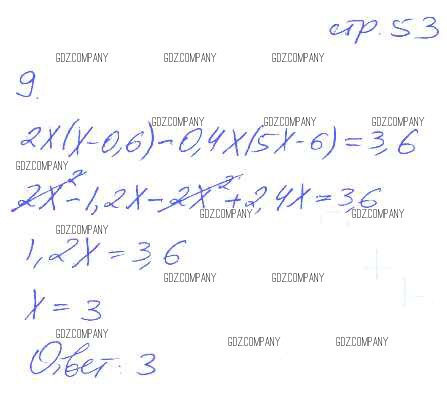 стр. 53
GDZ.COMPANY GDZ.COMPANY GDZ.COMPANY
9.
GDZ.COMPANY GDZ.COMPANY GDZ.COMPANY
2x(x-0,6)-0,4x(5x-6)=3,6
GDZ.COMPANY
2x²-1,2x-2x²+2,4x=3,6
GDZ.COMPANY GDZ.COMPANY
GDZ.COMPANY
1,2x=3,6
GDZ.COMPANY GDZ.COMPANY
x=3
GDZ.COMPANY GDZ.COMPANY GDZ.COMPANY
Ответ: 3